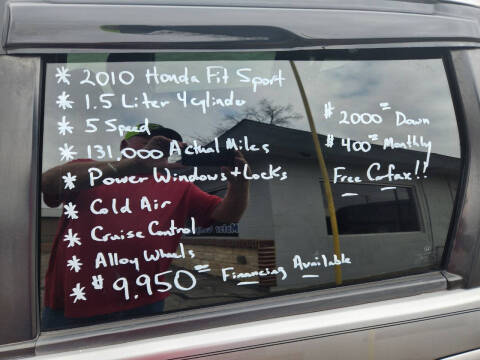 * 2010 Honda Fit Sport
* 1.5 Liter 4 cylinder
* 5 Speed
* 131,000 Actual Miles
* Power Windows + Locks
* Cold Air
* Cruise Control
* Alloy Wheels
* $9,950= Financing Available
$2000= Down
$400= Monthly
Free Carfax!!